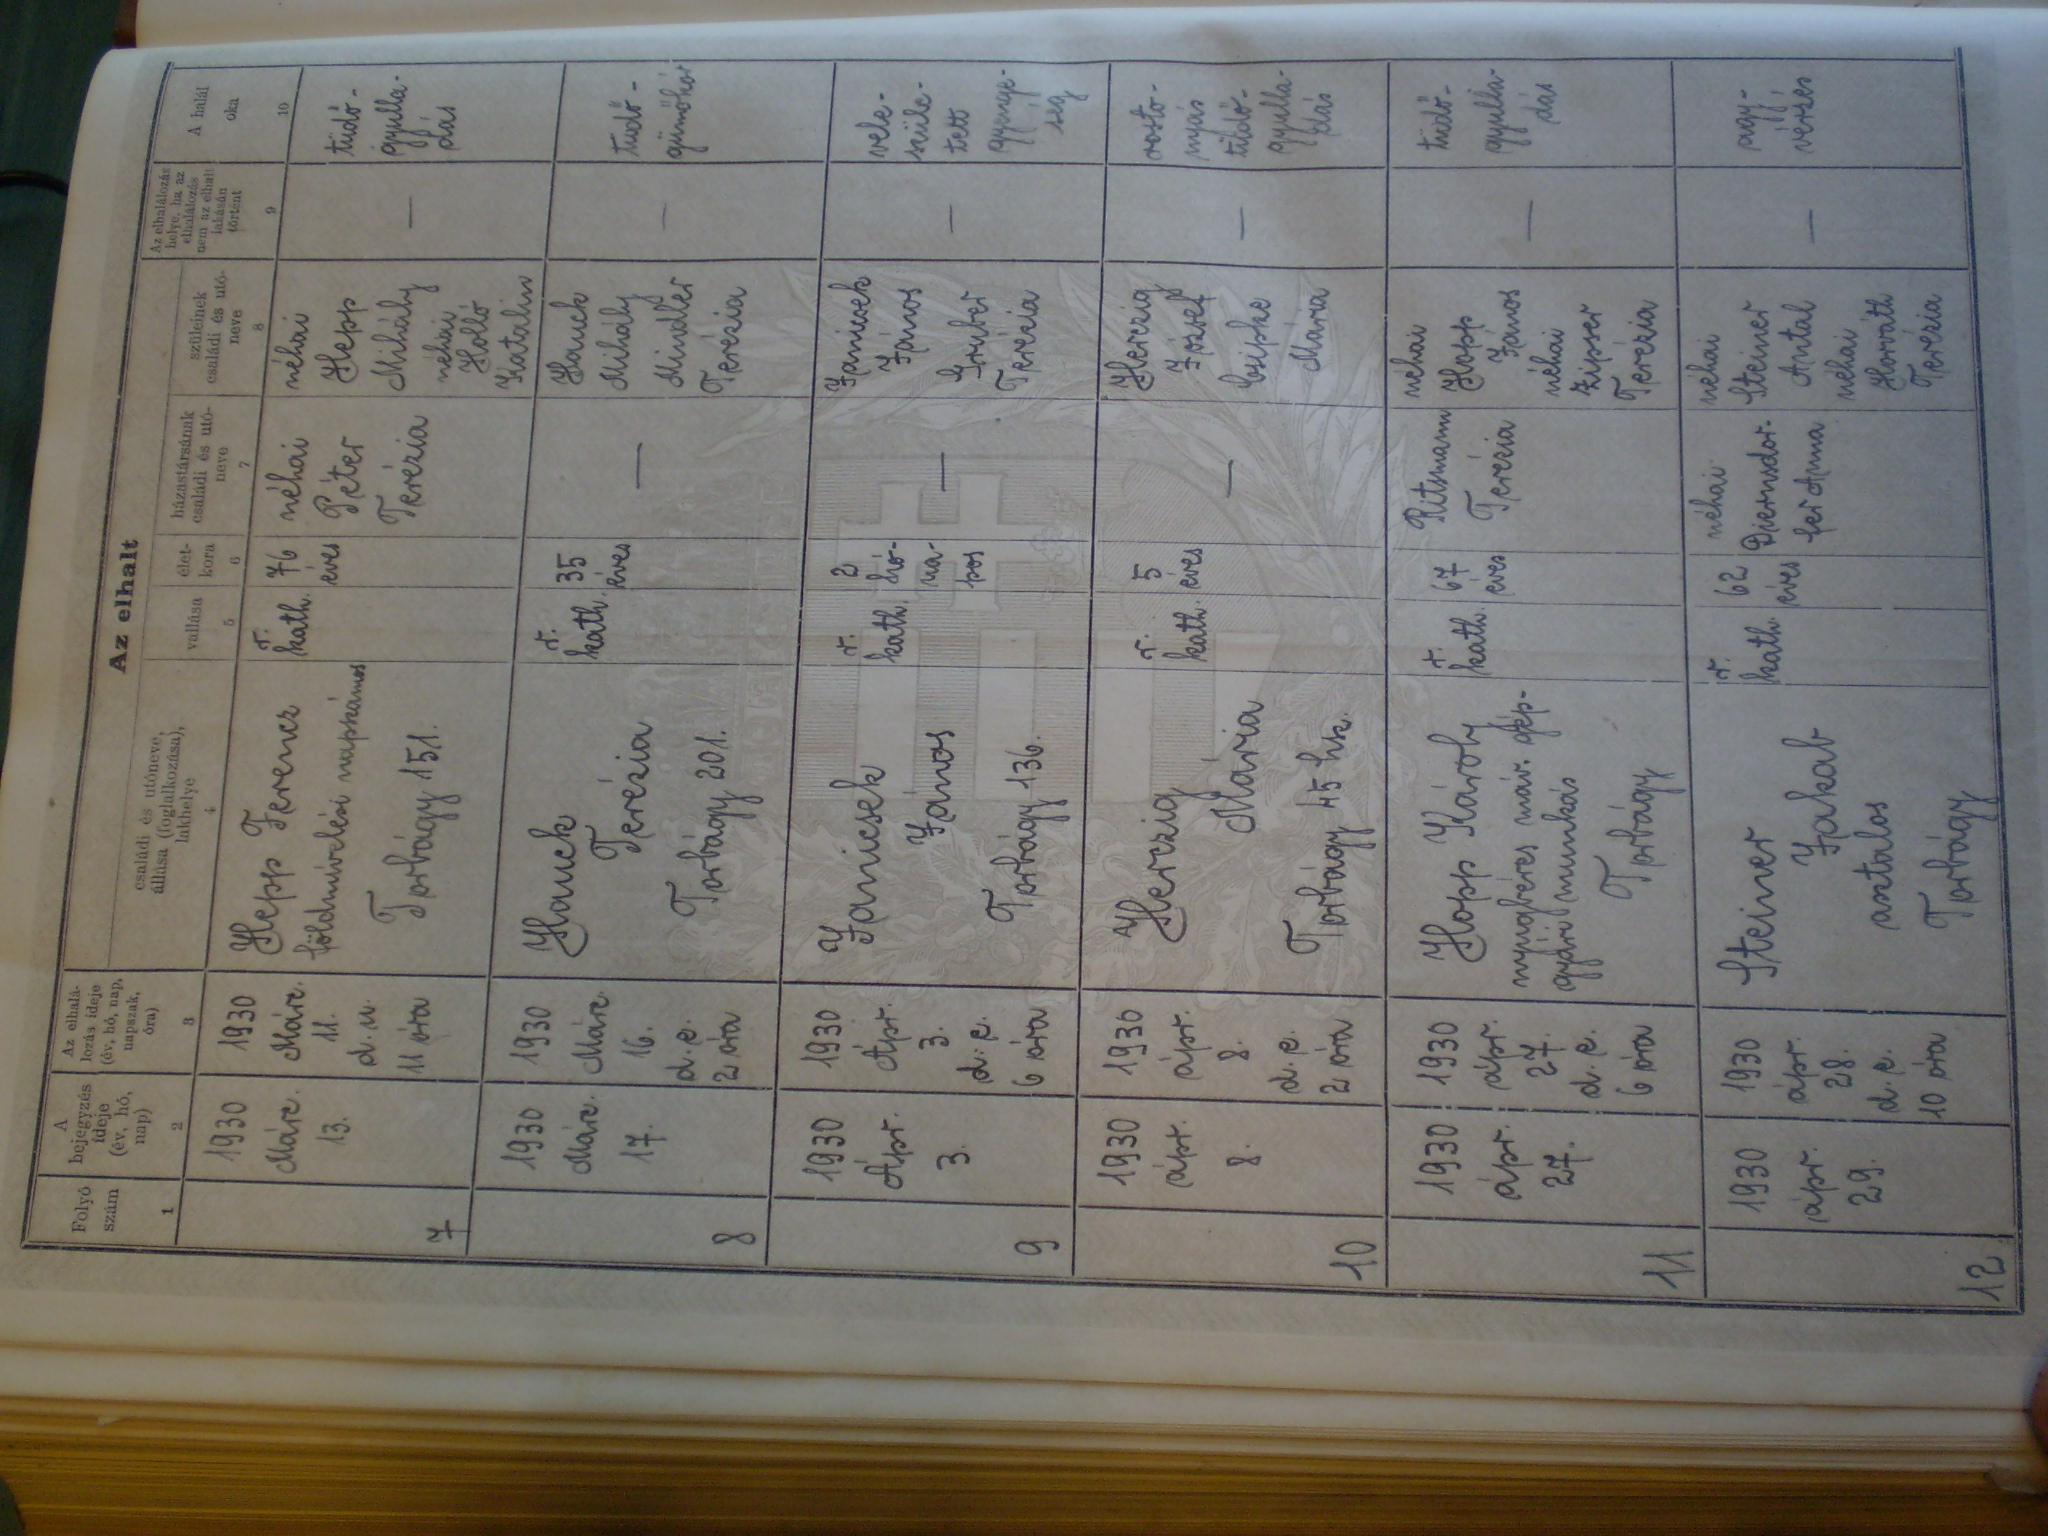 Az elhalt
Folyó
szám
A
bejegyzés
ideje
(év, hó,
nap)
Az elhalá-
lozás ideje
(év, hó, nap,
napszak,
óra)
családi és utóneve,
állása (foglalkozása),
lakhelye
vallása
élet-
kora
házastársának
családi és utó-
neve
szüleinek
családi és utó-
neve
Az elhalálozás
helye, ha az
elhalálozás
nem az elhalt
lakásán
történt
A halál
oka
1
2
3
4
5
6
7
8
9
10
7
1930
Márc.
13.
1930
Márc.
11.
d. u.
11 óra
Hepp Ferencz
földmívelési napszámos
Torbágy 151.
r.
kath.
76
éves
néhai
Péter
Terézia
néhai
Hepp
Mihály
néhai
Holló
Katalin
—
tüdő-
gyulla-
dás
8
1930
Márc.
17.
1930
Márc.
16.
d. e.
2 óra
Hauck
Terézia
Torbágy 201.
r.
kath.
35
éves
—
Hauck
Mihály
Mindler
Terézia
—
tüdő-
gümőkór
9
1930
Ápr.
3.
1930
Ápr.
3.
d. e.
6 óra
Janicsek
János
Torbágy 136.
r.
kath.
2
hó-
na-
pos
—
Janicsek
János
Gruber
Terézia
—
vele-
szüle-
tett
gyenge-
ség
10
1930
ápr.
8.
1930
ápr.
8.
d. e.
2 óra
Herczig
Mária
Torbágy 45 hsz.
r.
kath.
5
éves
—
Herczig
József
Csipke
Mária
—
rosto-
nyás
tüdő-
gyulla-
dás
11
1930
ápr.
27.
1930
ápr.
27.
d. e.
6 óra
Hopp Károly
nyugbéres máv. gép-
gyári munkás
Torbágy
r.
kath.
67
éves
Ritsmann
Terézia
néhai
Hopp
János
néhai
Zipser
Terézia
—
tüdő-
gyulla-
dás
12
1930
ápr.
29.
1930
ápr.
28.
d. e.
10 óra
Steiner
Jakab
asztalos
Torbágy
r.
kath.
62
éves
néhai
Diernsdor-
fer Anna
néhai
Steiner
Antal
néhai
Horváth
Terézia
—
agy-
vérzés